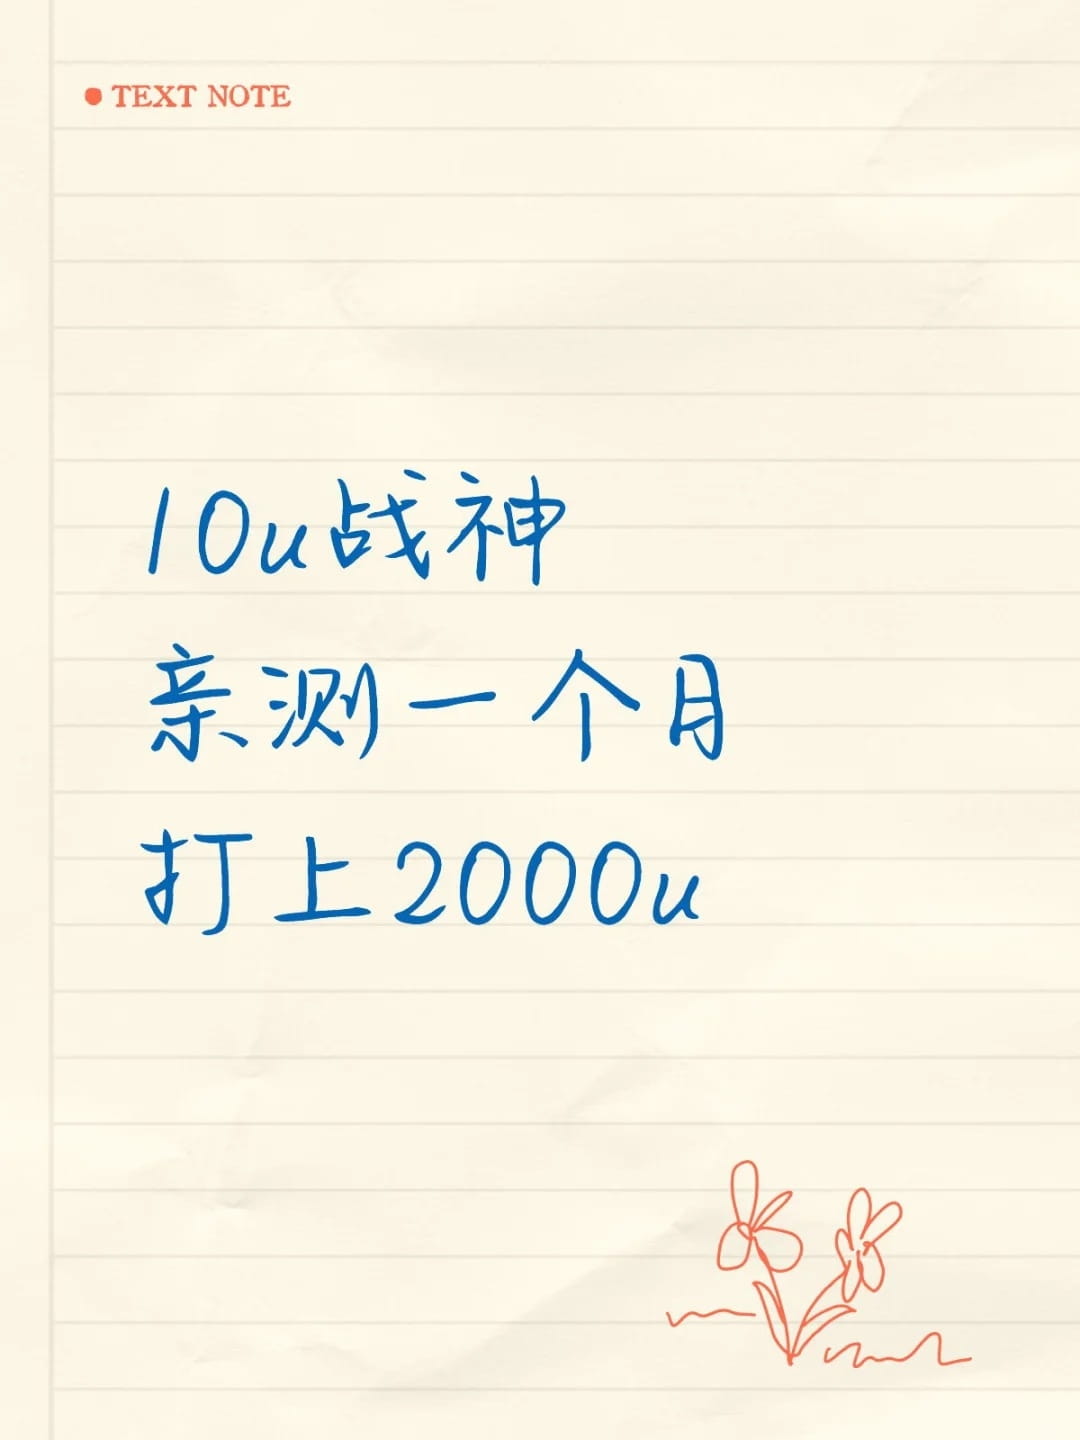 TEXT NOTE
10u战神
亲测一个月
打上2000u